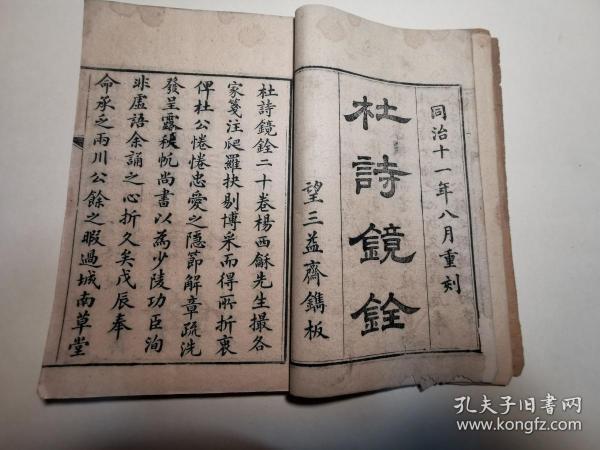 同治十一年八月重刻
杜詩鏡銓
望三益齋鐫板
杜詩鏡銓二十卷楊西龢先生撮各
家箋注爬羅抉剔博采而得所折衷
俾杜公惓惓忠愛之隱節解章疏洗
發呈露秋帆尚書以為少陵功臣洵
非虛語余誦之心折久矣戊辰奉
命承乏兩川公餘之暇過城南草堂
孔夫子旧书网
www.kongfz.com